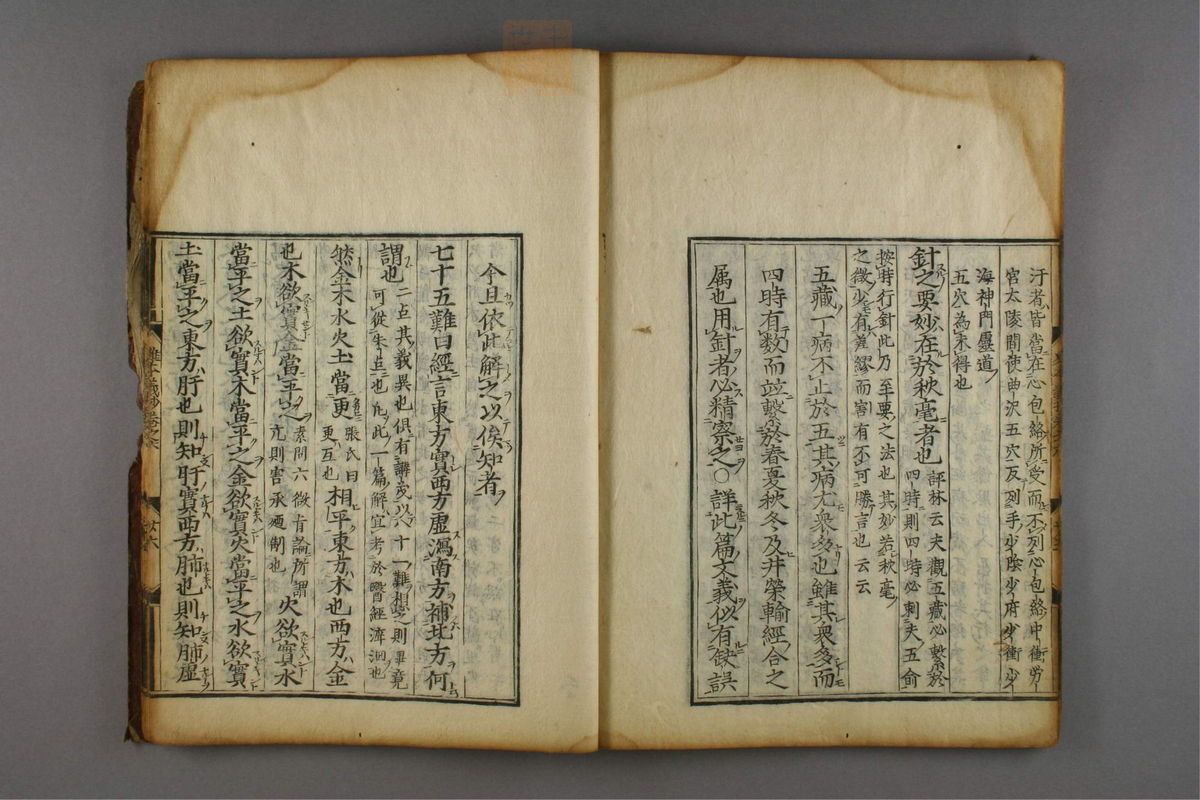 汗者皆當在心包絡所受而不列心包絡中衝勞
宮太陵間使曲沢五穴反列手少陰少府少衝少
海神門靈道
五穴為未得也
針之要妙在於秋毫者也
評林云夫觀五藏必繫於
四時則四時必刺夫五俞
按時行針此乃至要之法也其妙若秋毫
之微少有差繆而害有不可勝言也云云
五藏一病不止於五其病尤衆多也雖其衆多而
四時有数而並繫於春夏秋冬及井榮輸經合之
属也用針者必精察之○詳此篇文義似有缺誤
今且依此解之以俟知者
七十五難曰經言東方實西方虛瀉南方補北方何
謂也
二点其義異也俱有講義以八十一難想之則畢竟
可從朱点也凡此一篇解宜考於醫經溯洄也
然金木水火土當更
張氏曰
更互也
相平東方木也西方金
也木欲實金當平之
素問六微旨論所謂
亢則害承廼制也
火欲實水
當平之土欲實木當平之金欲實火當平之水欲實
土當平之東方肝也則知肝實西方肺也則知肺虛